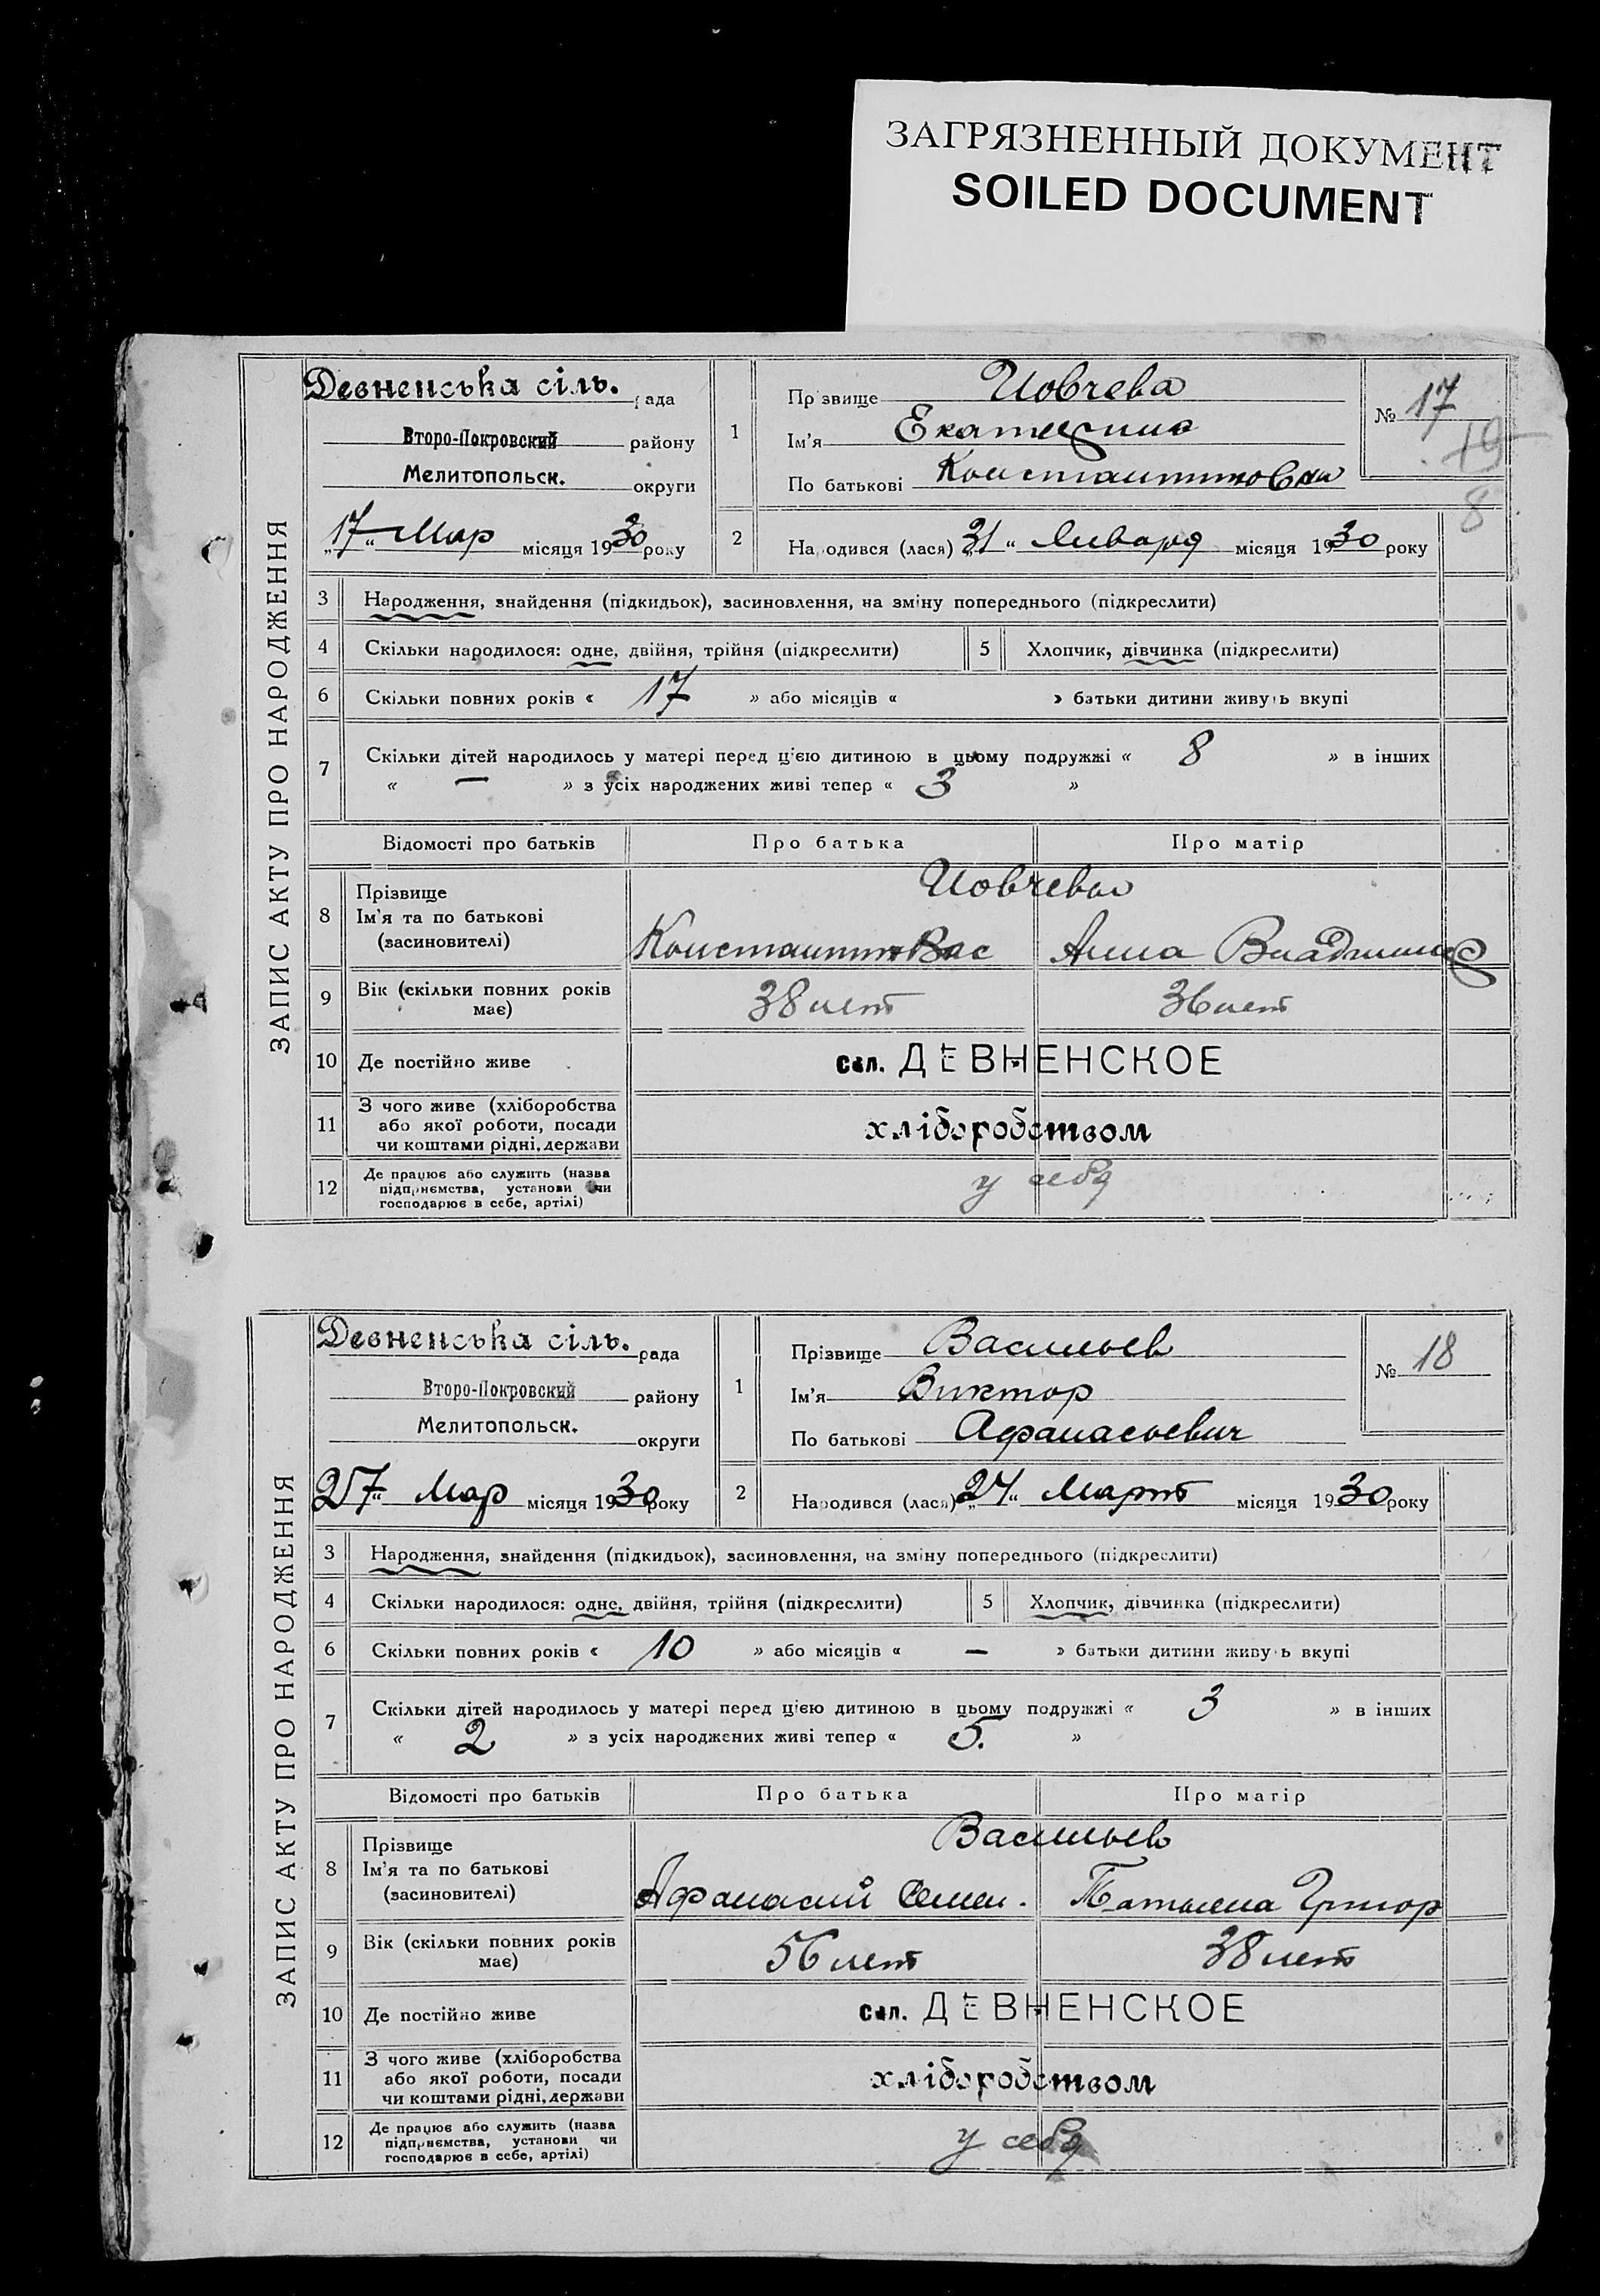 ЗАГРЯЗНЕННЫЙ ДОКУМЕНТ
SOILED DOCUMENT
ЗАПИС АКТУ ПРО НАРОДЖЕННЯ
Девненська сіль. рада
Второ-Покровский району
Мелитопольск. округи
„17“ Мар місяця 1930 року
1
Прізвище Иовчева
Ім'я Екатерина
По батькові Константиновна
№ 17
19
8
2
Народився (лася) „31“ Января місяця 1930 року
3 Народження, знайдення (підкидьок), засиновлення, на зміну попереднього (підкреслити)
4 Скільки народилося: одне, двійня, трійня (підкреслити) 5 Хлопчик, дівчинка (підкреслити)
6 Скільки повних років « 17 » або місяців « » батьки дитини живуть вкупі
7 Скільки дітей народилось у матері перед цією дитиною в цьому подружжі « 8 » в інших
« — » з усіх народжених живі тепер « 3 »
Відомості про батьків Про батька Про матір
8 Прізвище Иовчевы
Ім'я та по батькові
(засиновителі) Константин Вас Анна Владимир
9 Вік (скільки повних років має) 38 лет 36 лет
10 Де постійно живе Сел. ДЕВНЕНСКОЕ
11 З чого живе (хліборобства
або якої роботи, посади
чи коштами рідні, держави хліборобством
12 Де працює або служить (назва
підприємства, установи чи
господарює в себе, артілі) у себя
ЗАПИС АКТУ ПРО НАРОДЖЕННЯ
Девненська сіль. рада
Второ-Покровский району
Мелитопольск. округи
27“ Мар місяця 1930 року
1
Прізвище Васильев
Ім'я Виктор
По батькові Афанасьевич
№ 18
2
Народився (лася) „24“ Март місяця 1930 року
3 Народження, знайдення (підкидьок), засиновлення, на зміну попереднього (підкреслити)
4 Скільки народилося: одне, двійня, трійня (підкреслити) 5 Хлопчик, дівчинка (підкреслити)
6 Скільки повних років « 10 » або місяців « — » батьки дитини живуть вкупі
7 Скільки дітей народилось у матері перед цією дитиною в цьому подружжі « 3 » в інших
« 2 » з усіх народжених живі тепер « 5. »
Відомості про батьків Про батька Про матір
8 Прізвище Васильев
Ім'я та по батькові
(засиновителі) Афанасий Семен. Татьяна Григор
9 Вік (скільки повних років має) 56 лет 38 лет
10 Де постійно живе Сел. ДЕВНЕНСКОЕ
11 З чого живе (хліборобства
або якої роботи, посади
чи коштами рідні, держави хліборобством
12 Де працює або служить (назва
підприємства, установи чи
господарює в себе, артілі) у себя